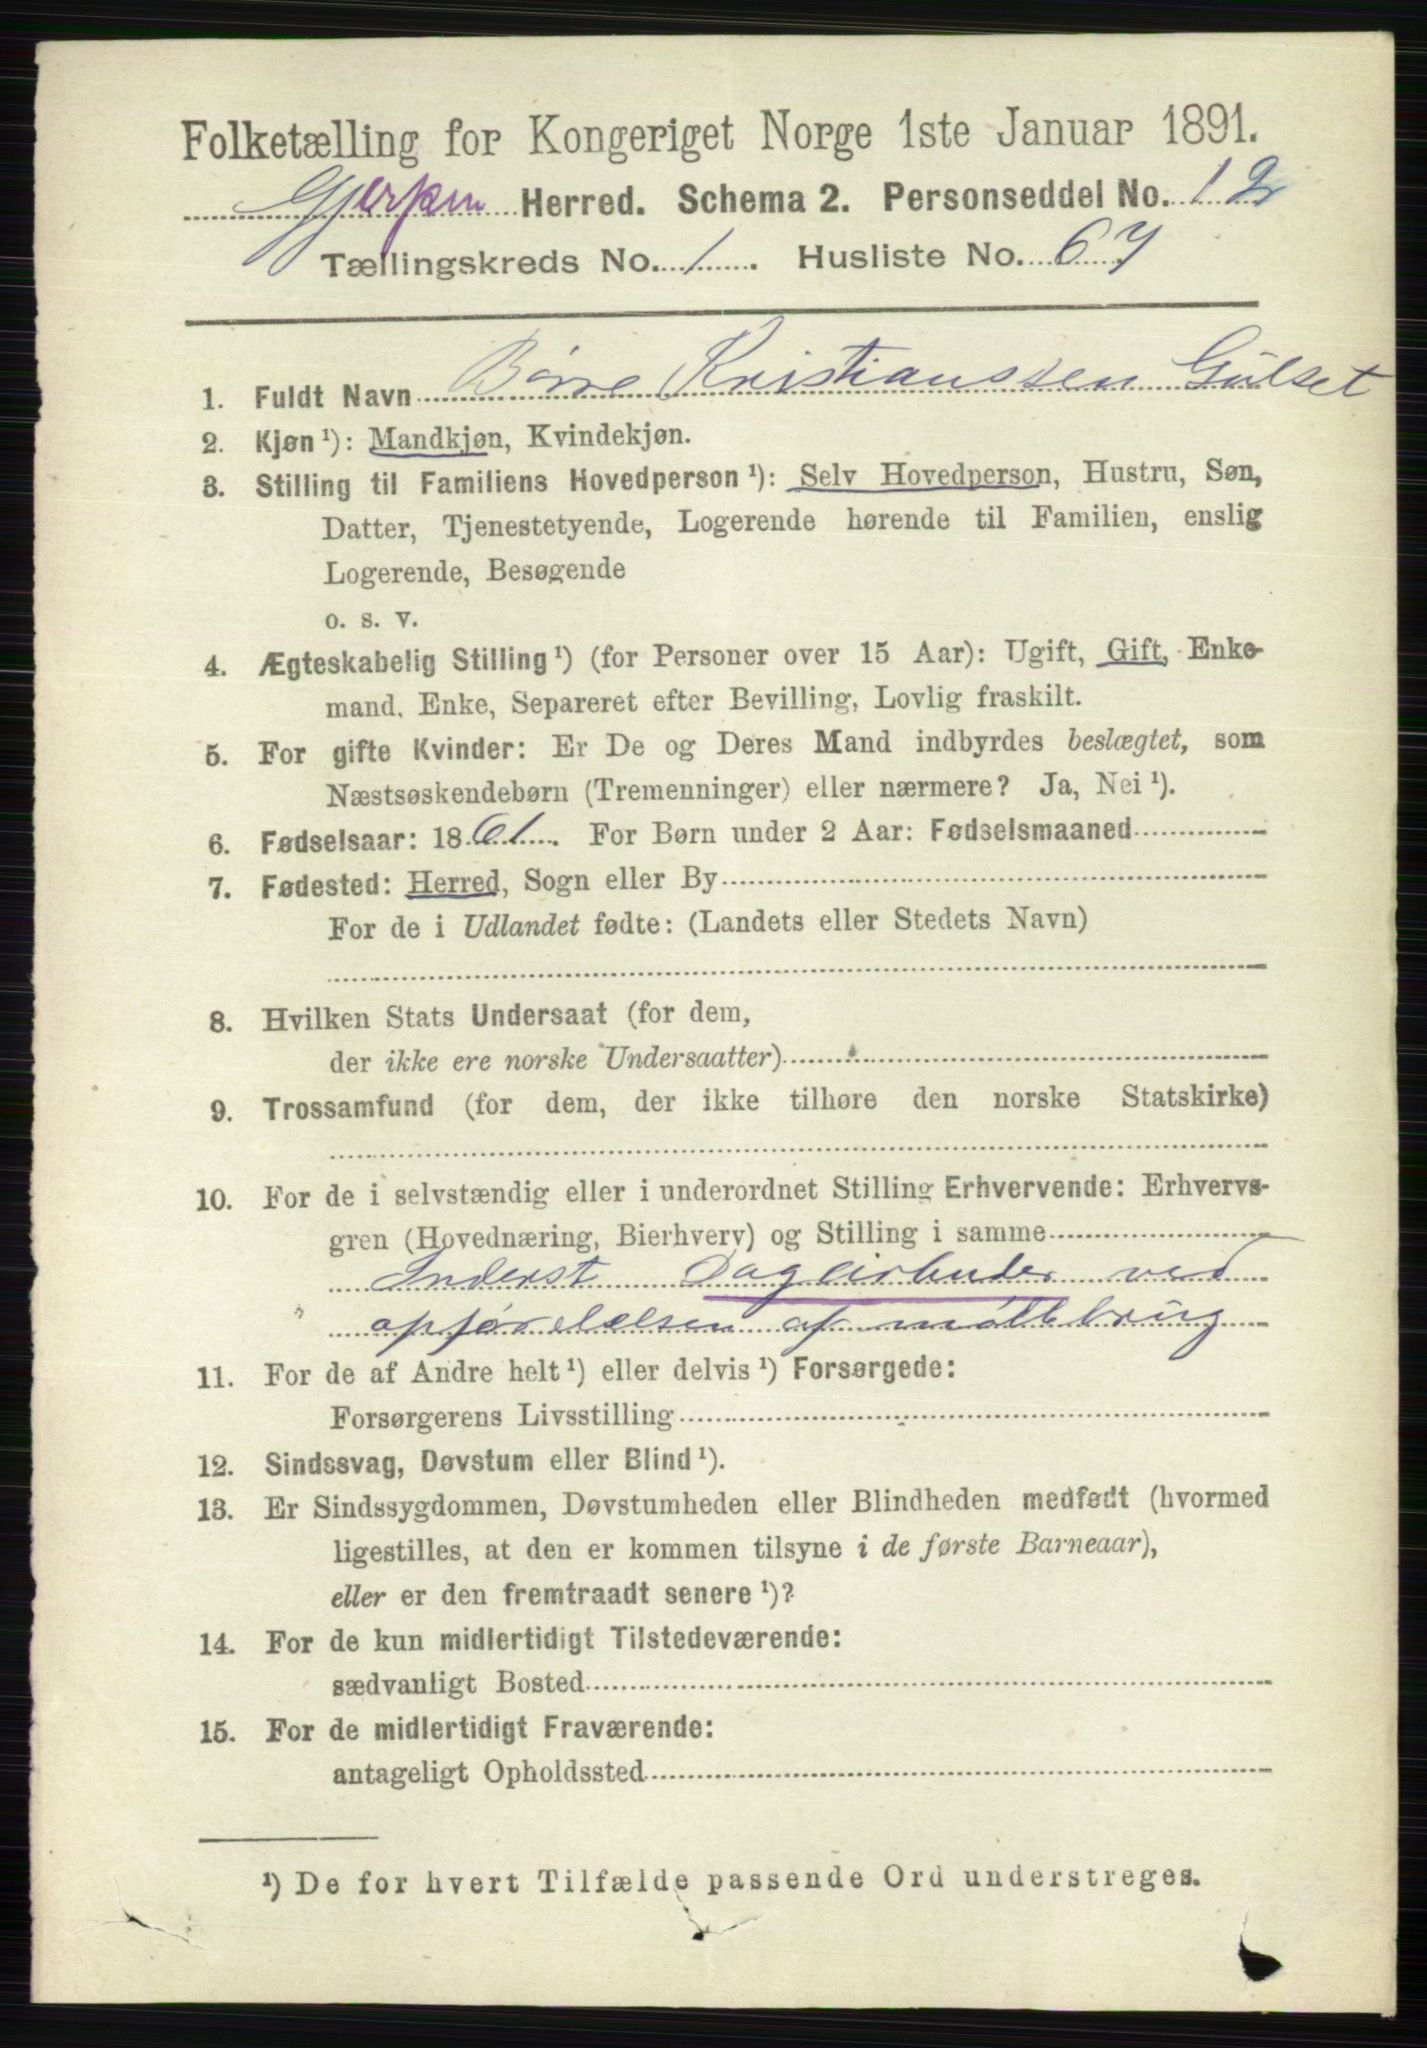 Folketælling for Kongeriget Norge 1ste Januar 1891.
Gjerpen Herred. Schema 2. Personseddel No. 12
Tællingskreds No. 1. Husliste No. 67
1. Fuldt Navn Børre Kristianssen Gulset
2. Kjøn ¹): Mandkjøn, Kvindekjøn.
3. Stilling til Familiens Hovedperson ¹): Selv Hovedperson, Hustru, Søn,
Datter, Tjenestetyende, Logerende hørende til Familien, enslig
Logerende, Besøgende
o. s. v.
4. Ægteskabelig Stilling ¹) (for Personer over 15 Aar): Ugift, Gift, Enke-
mand, Enke, Separeret efter Bevilling, Lovlig fraskilt.
5. For gifte Kvinder: Er De og Deres Mand indbyrdes beslægtet, som
Næstsøskendebørn (Tremenninger) eller nærmere? Ja, Nei ¹).
6. Fødselsaar: 1861. For Børn under 2 Aar: Fødselsmaaned
7. Fødested: Herred, Sogn eller By
For de i Udlandet fødte: (Landets eller Stedets Navn)
8. Hvilken Stats Undersaat (for dem,
der ikke ere norske Undersaatter)
9. Trossamfund (for dem, der ikke tilhøre den norske Statskirke)
10. For de i selvstændig eller i underordnet Stilling Erhvervende: Erhvervs-
gren (Hovednæring, Bierhverv) og Stilling i samme
Inderst Dagarbuder ved
opførelelsen af
11. For de af Andre helt ¹) eller delvis ¹) Forsørgede:
Forsørgerens Livsstilling
12. Sindssvag, Døvstum eller Blind ¹).
13. Er Sindssygdommen, Døvstumheden eller Blindheden medfødt (hvormed
ligestilles, at den er kommen tilsyne i de første Barneaar),
eller er den fremtraadt senere ¹)?
14. For de kun midlertidigt Tilstedeværende:
sædvanligt Bosted
15. For de midlertidigt Fraværende:
antageligt Opholdssted
¹) De for hvert Tilfælde passende Ord understreges.